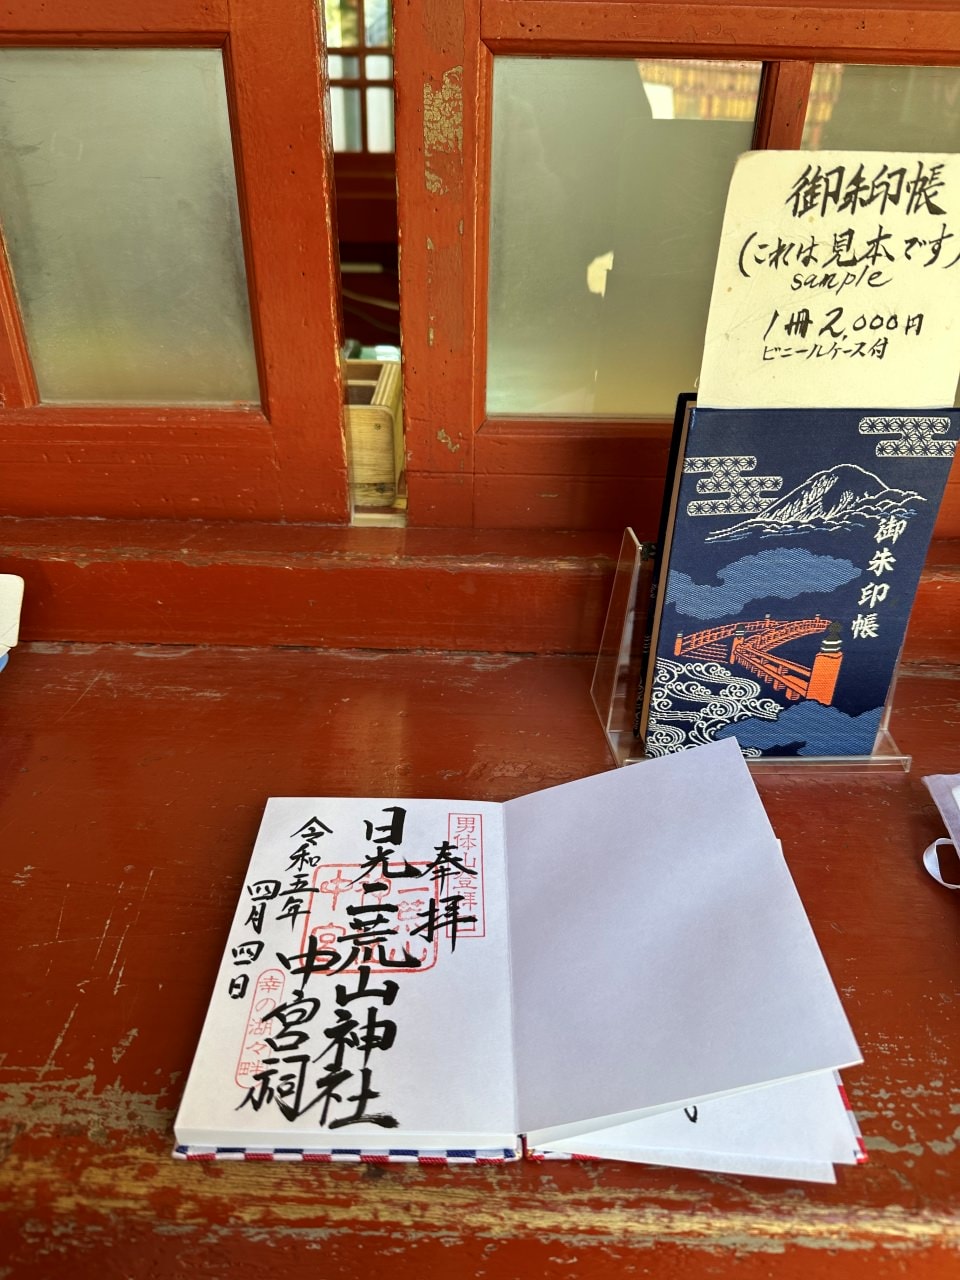 御朱印帳
(これは見本です)
sample
1冊 2,000円
ビニールケース付
御朱印帳
奉拝
男体山登拝口
日光二荒山神社
中宮祠
二荒山神社中宮祠
令和五年
四月四日
幸の湖々畔